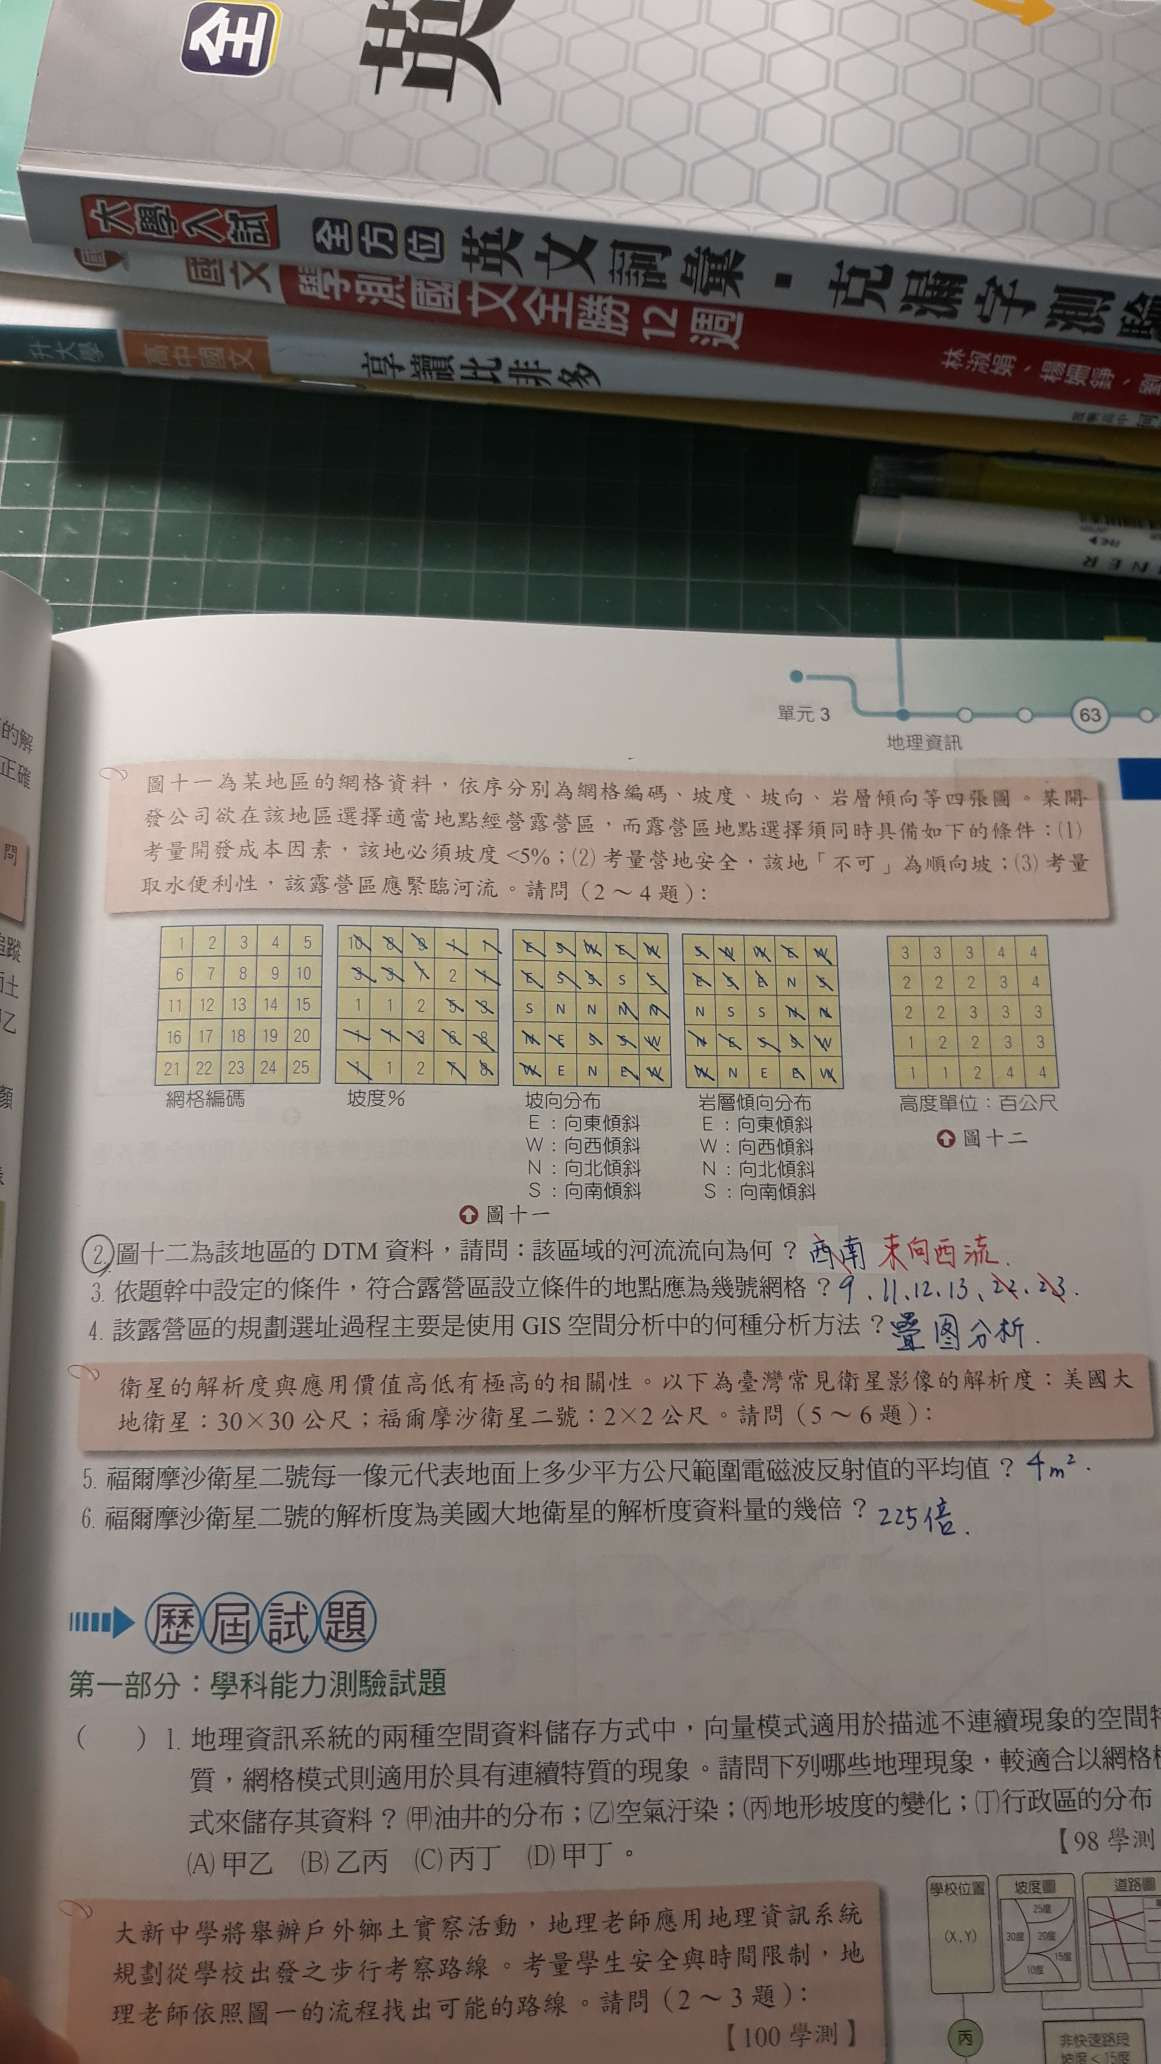 全
英
大學入試 全方位 英文詞彙・克漏字測驗
國文 學測國文全勝12週 林淑娟、楊姍錚、劉
升大學 高中國文 享讀比非多
NER
的解
正確
問
追蹤
單元3
63
地理資訊
圖十一為某地區的網格資料，依序分別為網格編碼、坡度、坡向、岩層傾向等四張圖。某開
發公司欲在該地區選擇適當地點經營露營區，而露營區地點選擇須同時具備如下的條件：⑴
考量開發成本因素，該地必須坡度<5%；⑵考量營地安全，該地「不可」為順向坡；⑶考量
取水便利性，該露營區應緊臨河流。請問（2～4題）：
1 2 3 4 5
6 7 8 9 10
11 12 13 14 15
16 17 18 19 20
21 22 23 24 25
網格編碼
2
1 1 2 5 3
1 2
坡度%
E S W E W
E S S S S
S N N N N
N E S S W
W E N E W
坡向分布
E：向東傾斜
W：向西傾斜
N：向北傾斜
S：向南傾斜
圖十一
S W W E W
E S E N S
N S S N N
N E S S W
W N E E W
岩層傾向分布
E：向東傾斜
W：向西傾斜
N：向北傾斜
S：向南傾斜
3 3 3 4 4
2 2 2 3 4
2 2 3 3 3
1 2 2 3 3
1 1 2 4 4
高度單位：百公尺
圖十二
2. 圖十二為該地區的DTM資料，請問：該區域的河流流向為何？西南 東向西流.
3. 依題幹中設定的條件，符合露營區設立條件的地點應為幾號網格？9、11、12、13、22、23.
4. 該露營區的規劃選址過程主要是使用GIS空間分析中的何種分析方法？疊图分析.
衛星的解析度與應用價值高低有極高的相關性。以下為臺灣常見衛星影像的解析度：美國大
地衛星：30×30公尺；福爾摩沙衛星二號：2×2公尺。請問（5～6題）：
5. 福爾摩沙衛星二號每一像元代表地面上多少平方公尺範圍電磁波反射值的平均值？4m².
6. 福爾摩沙衛星二號的解析度為美國大地衛星的解析度資料量的幾倍？225倍.
歷屆試題
第一部分：學科能力測驗試題
（　）1. 地理資訊系統的兩種空間資料儲存方式中，向量模式適用於描述不連續現象的空間特
質，網格模式則適用於具有連續特質的現象。請問下列哪些地理現象，較適合以網格模
式來儲存其資料？㈙油井的分布；㈚空氣汙染；㈛地形坡度的變化；㈜行政區的分布
(A)甲乙 (B)乙丙 (C)丙丁 (D)甲丁。
【98學測
大新中學將舉辦戶外鄉土實察活動，地理老師應用地理資訊系統
規劃從學校出發之步行考察路線。考量學生安全與時間限制，地
理老師依照圖一的流程找出可能的路線。請問（2～3題）：
【100學測】
學校位置 坡度圖 道路圖
(X,Y)
25度
30度 20度
15度
10度
丙
非快速路段
坡度<15度